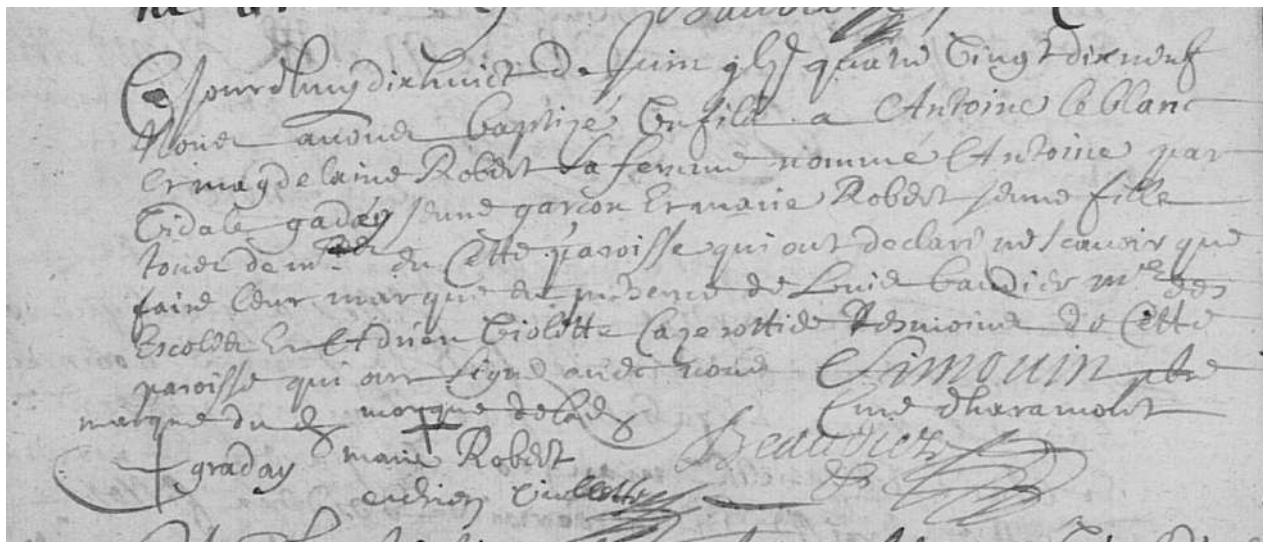 Ce Jourdhuy dixhuict de Juin quatre Vingt dixneuf
Nous avons baptizé Un fils a Antoine leblanc
Et magdelaine Robert Sa femme nommé Antoine par
Vidale gaday jeune garçon Et marie Robert jeune fille
tous de Cette paroisse qui ont declaré ne scavoir que
faire leur marque en presence de Louis baudier mre des
Escoles Et Adrien Violette tesmoins de Cette
paroisse qui ont signé avec nous Simouin pbre
marque du d marque de lad Curé dharamont
graday marie Robert Beaudier
adrien violette